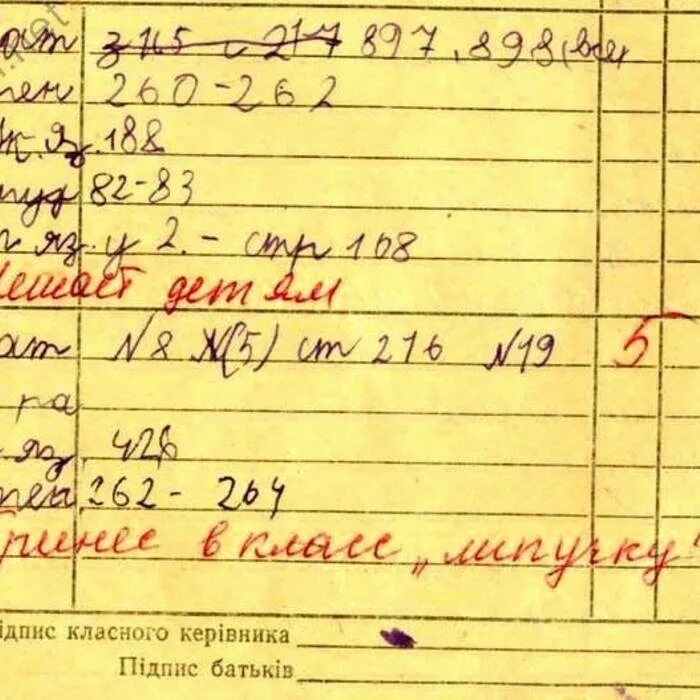 ат з 115 с 217 897, 898 (все)
тен 260-262
к. яз. 188
труд 82-83
яз. у 2. - стр 168
Мешает детям
ат №8 Ж(5) ст 216 №19 5
ра
яз. 426
тен 262 - 264
Принес в класс „липучку"
підпис класного керівника
Підпис батьків